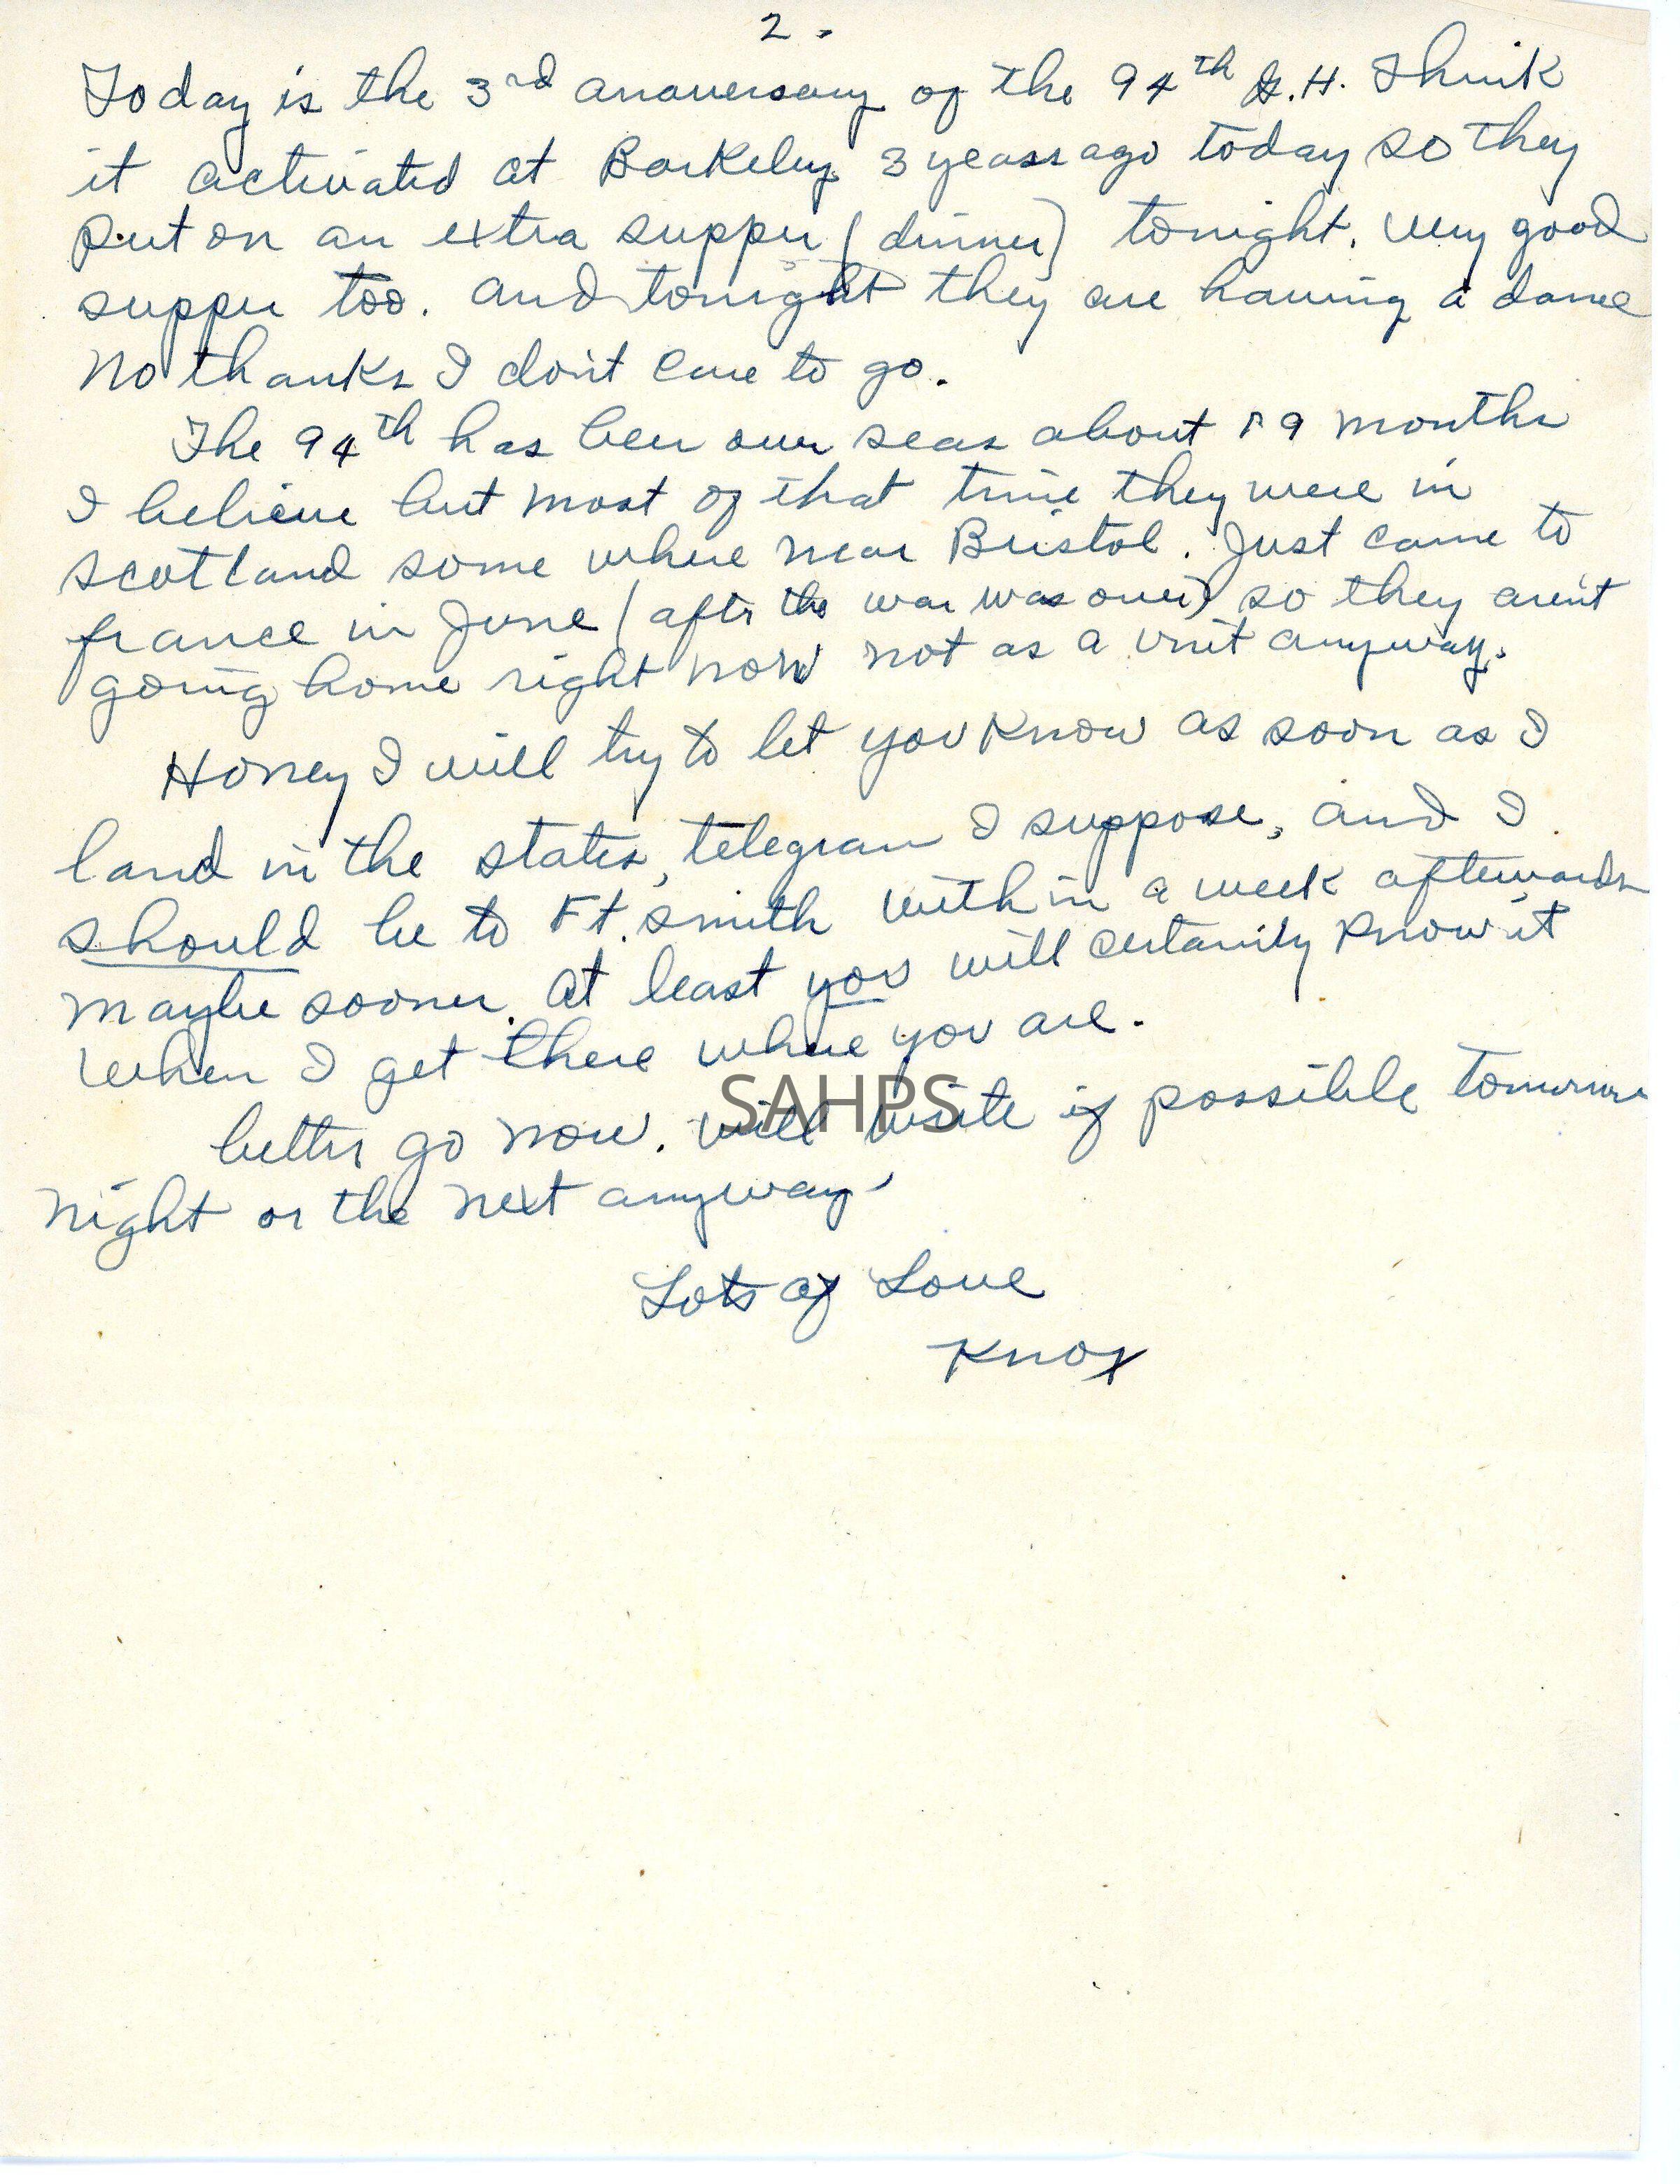 2.
Today is the 3rd anaversary of the 94th G.H. Think
it activated at Barkeley 3 years ago today so they
put on an extra supper (dinner) tonight. Very good
supper too. And tonight they are having a dance
No thanks I don't care to go.
The 94th has been over seas about 19 months
I believe but most of that time they were in
scotland some where near Bristol. Just came to
france in June (aftr the war was over) so they aren't
going home right now not as a unit anyway.
Honey I will try to let you know as soon as I
land in the states, telegram I suppose, and I
should be to Ft. Smith within a week afterwards
maybe sooner. At least you will certainly know it
when I get there where you are.
better go now. will write if possible tomorrow
night or the next anyway.
SAHPS
Lots of Love
Knox